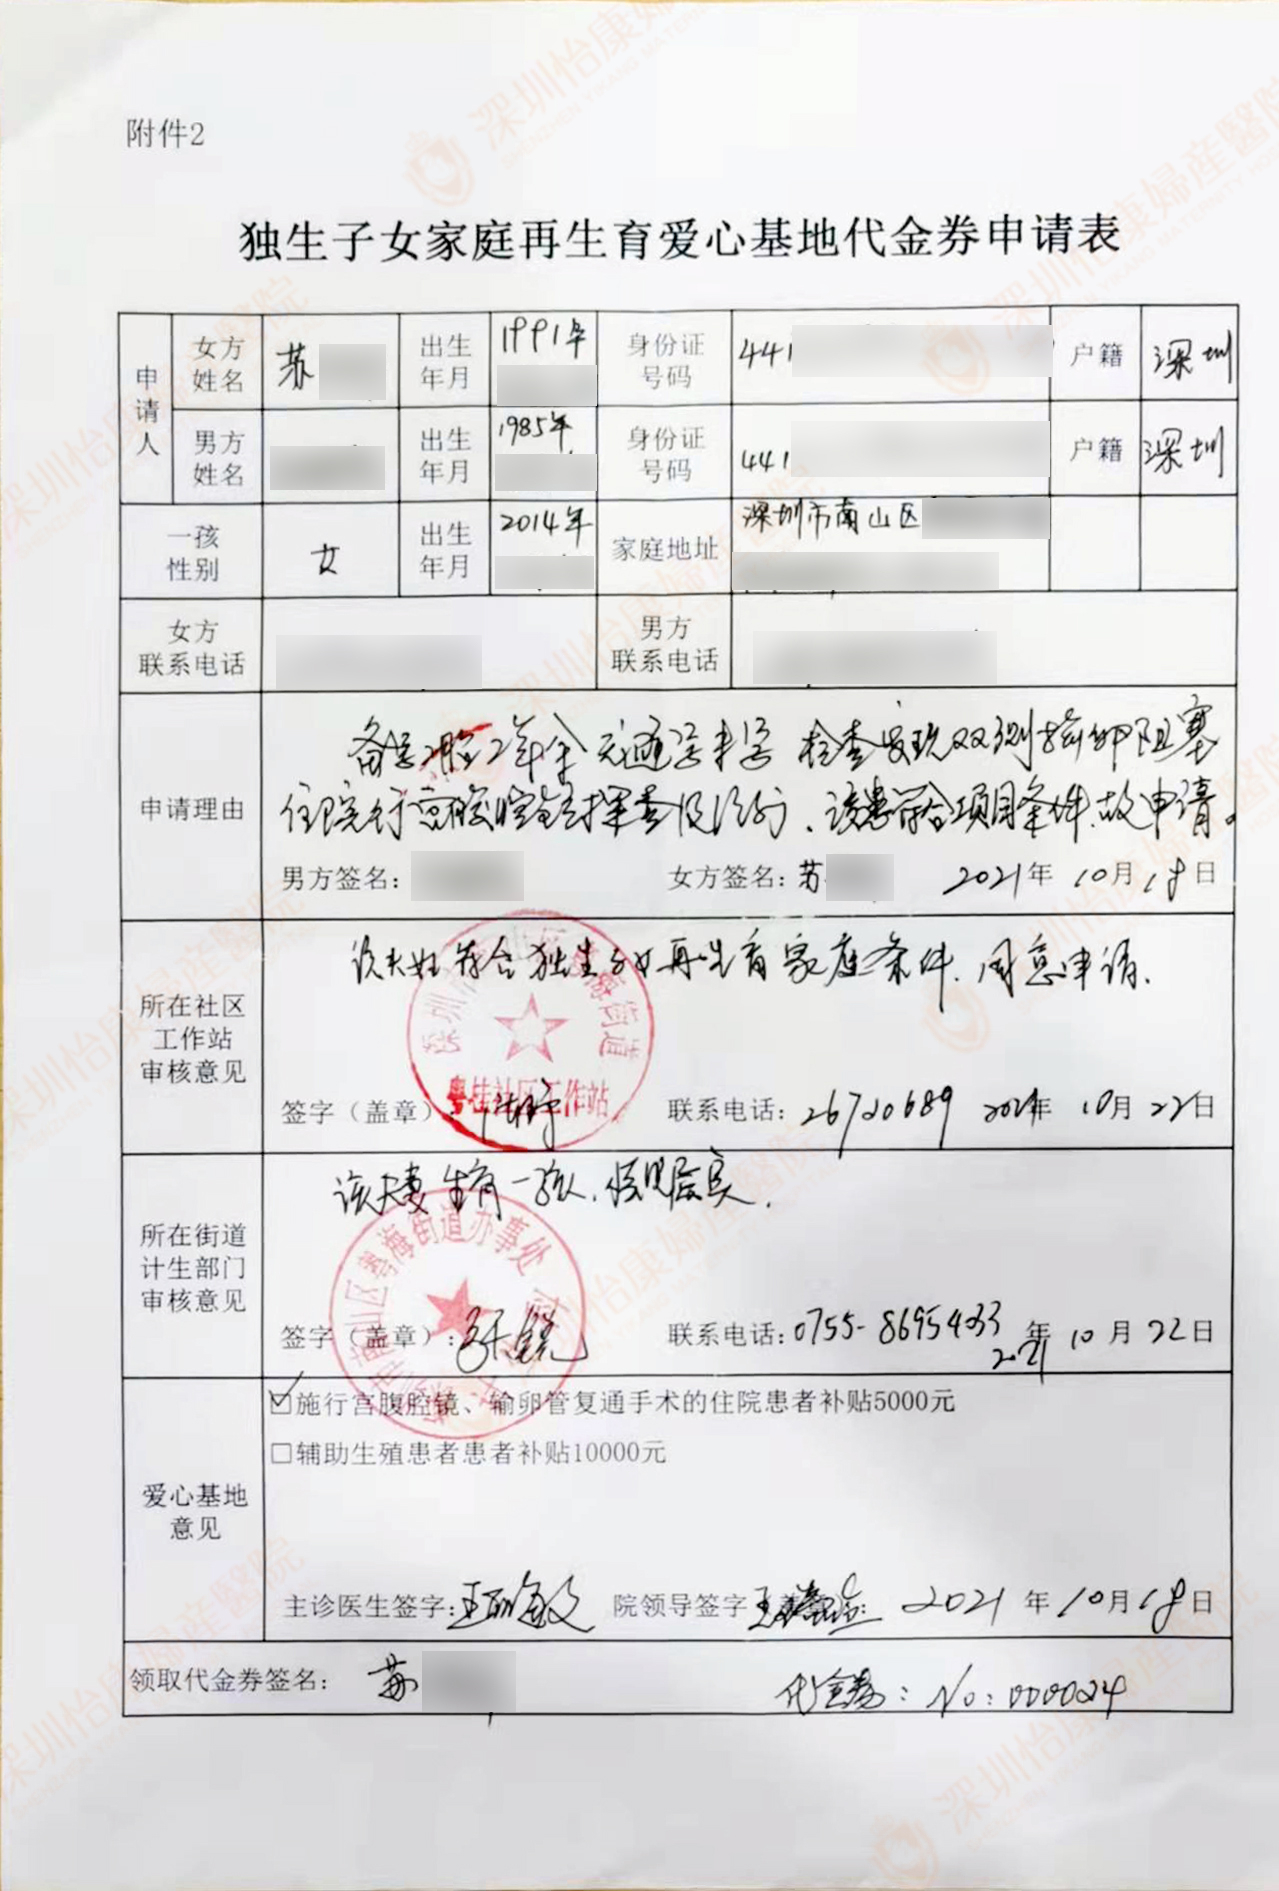 附件2
独生子女家庭再生育爱心基地代金券申请表
申请人 女方姓名 苏 出生年月 1991年 身份证号码 441 户籍 深圳
男方姓名 出生年月 1985年 身份证号码 441 户籍 深圳
一孩性别 女 出生年月 2014年 家庭地址 深圳市南山区
女方联系电话 男方联系电话
申请理由
备孕2胎2年余 未避孕未孕 检查发现双侧输卵阻塞
住院行宫腹腔镜探查及治疗、该患符合项目条件,故申请。
男方签名: 女方签名: 苏 2021年10月18日
所在社区工作站审核意见
该夫妇符合独生子女再生育家庭条件,同意申请.
粤海街道
粤桂社区工作站
签字（盖章） 联系电话: 26720689 2021年10月22日
所在街道计生部门审核意见
该夫妻生育一孩,情况属实.
南山区粤海街道办事处
签字（盖章）: 联系电话: 0755-8695433 2021年10月22日
爱心基地意见
☑施行宫腹腔镜、输卵管复通手术的住院患者补贴5000元
□辅助生殖患者患者补贴10000元
主诊医生签字: 院领导签字 2021年10月18日
领取代金券签名: 苏 代金券: No: 000024
深圳怡康婦産醫院
SHENZHEN YIKANG MATERNITY HOSPITAL